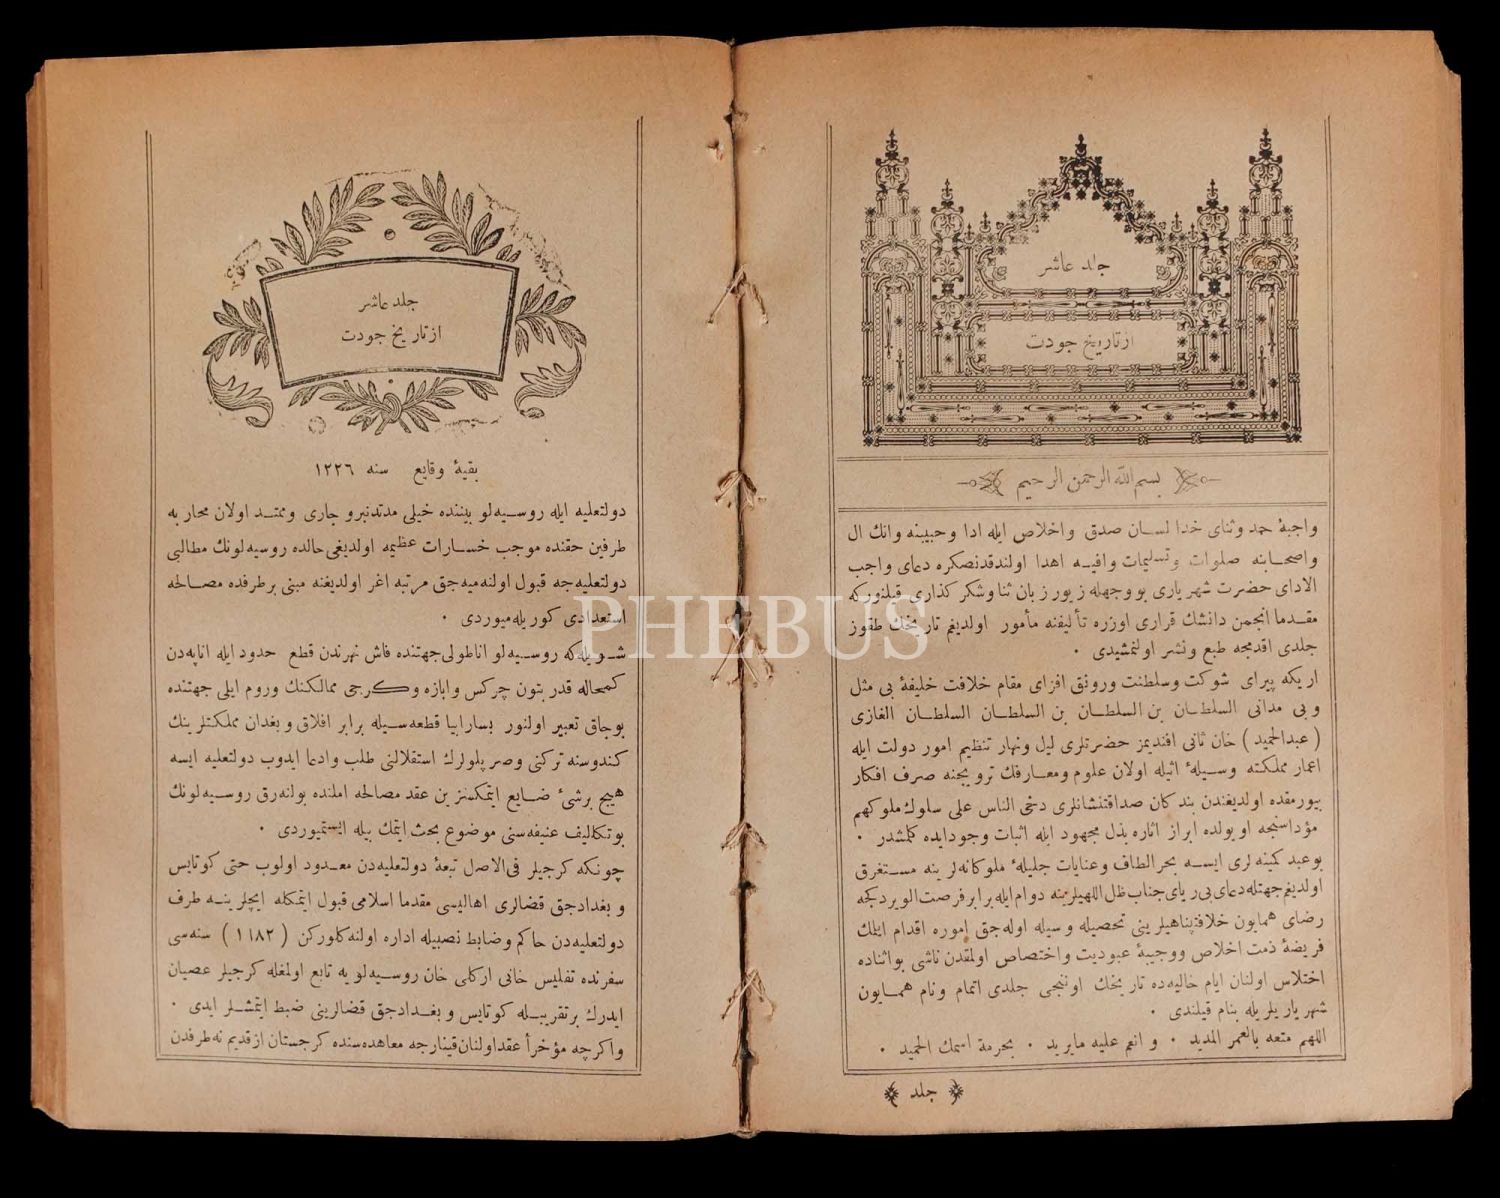 جلد عاشر
از تاریخ جودت
بسم الله الرحمن الرحیم
واجبهٔ حمد وثنای خدا لسان صدق واخلاص ایله ادا وحبیبنه وانك ال
واصحابنه صلوات وتسلیمات وافیه اهدا اولندقدنصکره دعای واجب
الادای حضرت شهریاری بووجهله زیور زبان ثنا وشکر کذاری قیلنورکه
مقدما انجمن دانشك قراری اوزره تألیفنه مأمور اولدیغم تاریخك طقوز
جلدی اقدمجه طبع ونشر اولنمشیدی ٠
اریکه پیرای شوکت وسلطنت ورونق افزای مقام خلافت خلیفهٔ بی مثل
وبی مدانی السلطان بن السلطان بن السلطان السلطان الغازی
( عبدالحمید ) خان ثانی افندیمز حضرتلری لیل ونهار تنظیم امور دولت ایله
اعمار مملکته وسیلهٔ اثیله اولان علوم ومعارفك ترویجنه صرف افکار
بیورمقده اولدیغندن بندکان صداقتنشانلری دخی الناس علی سلوك ملوکهم
مؤداسنجه اویولده ابراز اثاره بذل مجهود ایله اثبات وجود ایده کلمشدر ٠
بوعبد کمینه لری ایسه بحر الطاف وعنایات جلیلهٔ ملوکانه لرینه مستغرق
اولدیغم جهتله دعای بی ریای جناب ظل اللهیلرینه دوام ایله برابر فرصت الویردکجه
رضای همایون خلافتپناهیلرینی تحصیله وسیله اوله جق اموره اقدام ایلمك
فریضهٔ ذمت اخلاص ووجیبهٔ عبودیت واختصاص اولمقدن ناشی بواثناده
اختلاس اولنان ایام خالیه ده تاریخك اوننجی جلدی اتمام ونام همایون
شهریاریلریله بنام قیلندی ٠
اللهم متعه بالعمر المدید ٠ وانعم علیه مایرید ٠ بحرمة اسمك الحمید ٠
جلد
جلد عاشر
از تاریخ جودت
بقیهٔ وقایع سنه ١٢٢٦
دولتعلیه ایله روسیه لو بیننده خیلی مدتدنبرو جاری وممتد اولان محاربه
طرفین حقنده موجب خسارات عظیمه اولدیغی حالده روسیه لونك مطالبی
دولتعلیه جه قبول اولنه میه جق مرتبه اغر اولدیغنه مبنی برطرفده مصالحه
استعدادی کوریله میوردی ٠
شویله که روسیه لو اناطولی جهتنده فاش نهرندن قطع حدود ایله اناپه دن
کمحاله قدر بتون چرکس وابازه وکرجی ممالکنك وروم ایلی جهتنده
بوجاق تعبیر اولنور بسارابیا قطعه سیله برابر افلاق وبغدان مملکتلرینك
کندوسنه ترکنی وصرپلولرك استقلالنی طلب وادعا ایدوب دولتعلیه ایسه
هیچ برشیٔ ضایع ایتمکسزین عقد مصالحه املنده بولنه رق روسیه لونك
بوتکالیف عنیفه سنی موضوع بحث ایتمك بیله ایستمیوردی ٠
چونکه کرجیلر فی الاصل تبعهٔ دولتعلیه دن معدود اولوب حتی کوتایس
وبغدادجق قضالری اهالیسی مقدما اسلامی قبول ایتمکله ایچلرینه طرف
دولتعلیه دن حاکم وضابط نصبیله اداره اولنه کلورکن ( ١١٨٢ ) سنه سی
سفرنده تفلیس خانی ارکلی خان روسیه لویه تابع اولمغله کرجیلر عصیان
ایدرك برتقریبله کوتایس وبغدادجق قضالرینی ضبط ایتمشلر ایدی ٠
واکرچه مؤخرأ عقد اولنان قینارجه معاهده سنده کرجستان از قدیم نه طرفدن
PHEBUS